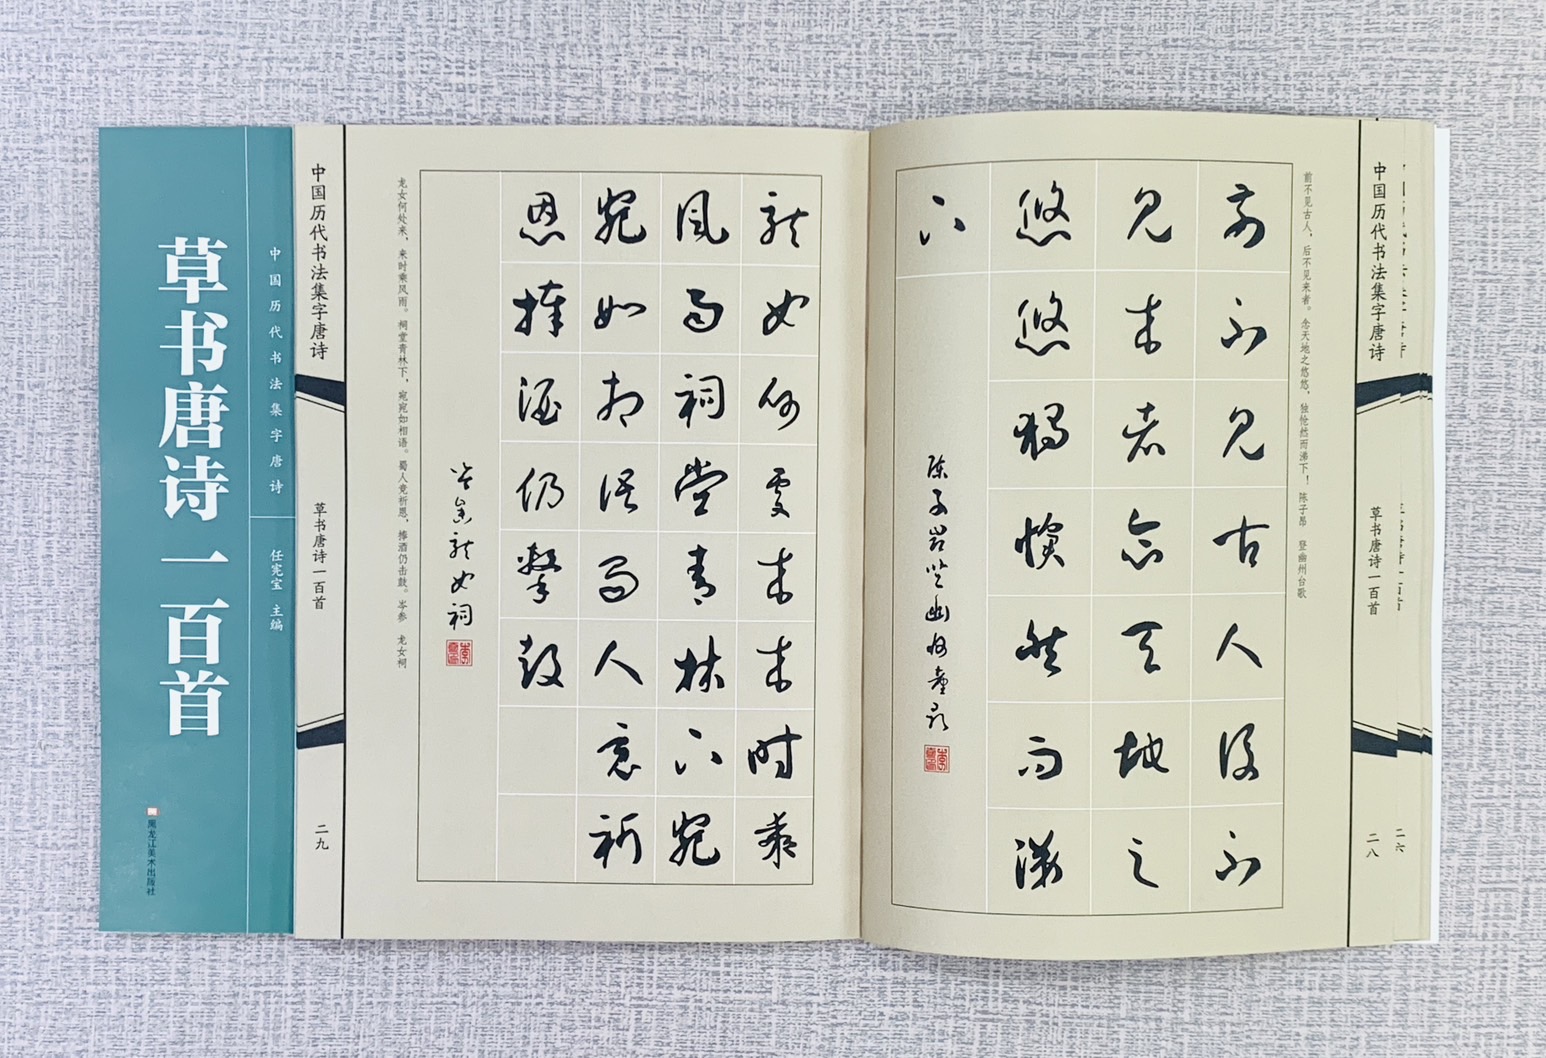 中国历代书法集字唐诗
草书唐诗一百首
二六
二八
前不见古人，后不见来者。念天地之悠悠，独怆然而涕下！ 陈子昂 登幽州台歌
前不見古人後不
見來者念天地之
悠悠獨愴然而涕
下
陳子昂登幽州臺歌
龍女何處來來時乘
風雨祠堂青林下宛
宛如相語蜀人竞祈
恩捧酒仍擊鼓
岑參龍女祠
龙女何处来，来时乘风雨。祠堂青林下，宛宛如相语。蜀人竞祈恩，捧酒仍击鼓。岑参 龙女祠
中国历代书法集字唐诗
草书唐诗一百首
二九
中国历代书法集字唐诗
任宪宝 主编
草书唐诗一百首
黑龙江美术出版社